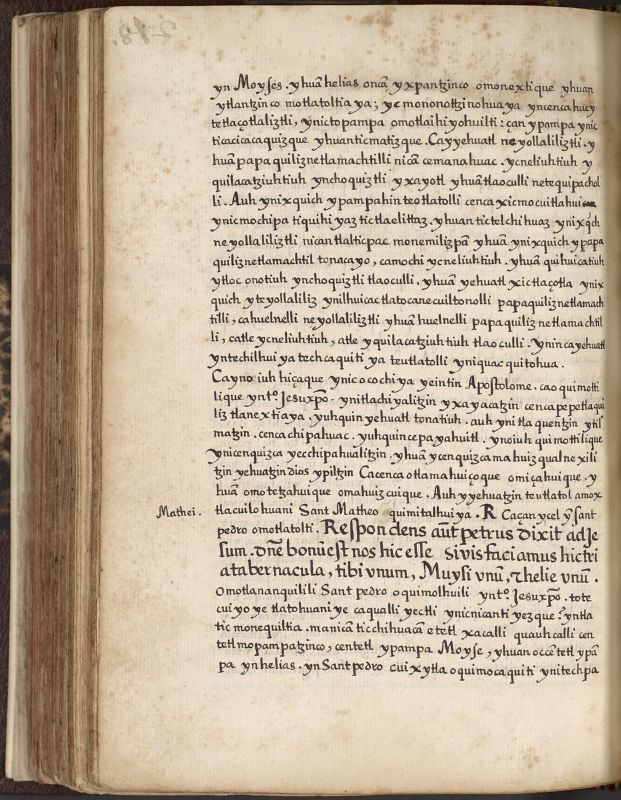 yn Moyſes. yhuā helias oncā yxpantzinco omonextique yhuan
ytlantzinco motlatoltiaya; yc mononotzinohuaya yncenca huey
tetlaçotlaliztli, ynictopampa omotlaihiyohuilti: çan ypampa ynic
ticacicacaquizque yhuanticmatizque. Cayyehuatl neyollaliliztli. y
huā papaquiliznetlamachtilli nicā cemanahuac. ycneliuhtiuh y
quilacatziuhtiuh ynchoquiztli yxayotl yhuā tlaoculli netequipachol
li. Auh ynixquich ypampahin teotlatolli cenca xicmocuitlahui
ynicmochipa tiquihiyaz tictlaelittaz. yhuan tictelchihuaz ynixq̄ch
neyollaliliztli nicantlalticpac monemilizpā yhuā ynixquich ypapa
quiliznetlamachtil tonacayo, camochi ycneliuhtiuh. yhuā quihuicatiuh
ytloc onotiuh ynchoquiztli tlaoculli. yhuā yehuatl xictlaçotla ynix
quich yteyollaliliz ynilhuicac tlatocanecuiltonolli papaquiliznetlamach
tilli, cahuelnelli neyollaliliztli yhuā huelnelli papaquiliznetlamachtil
li, catle ycneliuhtiuh, atle yquilacatziuhtiuh tlaoculli. Ynincayehuatl
yntechilhuiya techcaquitiya teutlatolli yniquac quitohua.
Cayno iuh hiçaque ynicocochiya yeintin Apoſtolome. cao quimotti
lique yntº. Jesuxp̄o. ynitlachiyalitzin yxayacatzin cencapepetlaqui
liz tlanextiaya. yuhquin yehuatl tonatiuh. auh ynitlaquentzin ytil
matzin. cencachipahuac. yuhquincepayahuitl. ynoiuh quimottilique
ynicenquizca yecchipahualitzin. yhuā ycenquizcamahuizqualnexili
tzin yehuatzin dios ypiltzin Cacenca otlamahuiçoque omiçahuique. y
huā omotetzahuique omahuizcuique. Auh yyehuatzin teutlatol amox
Mathei. tlacuilohuani Sant Matheo quimitalhuiya. R Caçan ycel ȳ sant
pedro omotlatolti. Reſpondens aūt petrus dixit ad Je
sum. dn̄e bonū eſt nos hic eſſe si vis faciamus hic tri
a tabernacula, tibi vnum, Muyſi vnū, & helie vnū.
Omotlananquilili Sant pedro oquimolhuili yntº. Jesuxp̄o. tote
cuiyo ye tlatohuani ye caqualli yectli ynicnicanti yezque? yntla
tic monequiltia. manicā ticchihuacā etetl xacalli quauhcalli cen
tetl mopampatzinco, centetl ypampa Moyse, yhuan occētetl ypā
pa ynhelias. yn Santpedro cuix ytla oquimocaquiti ynitechpa